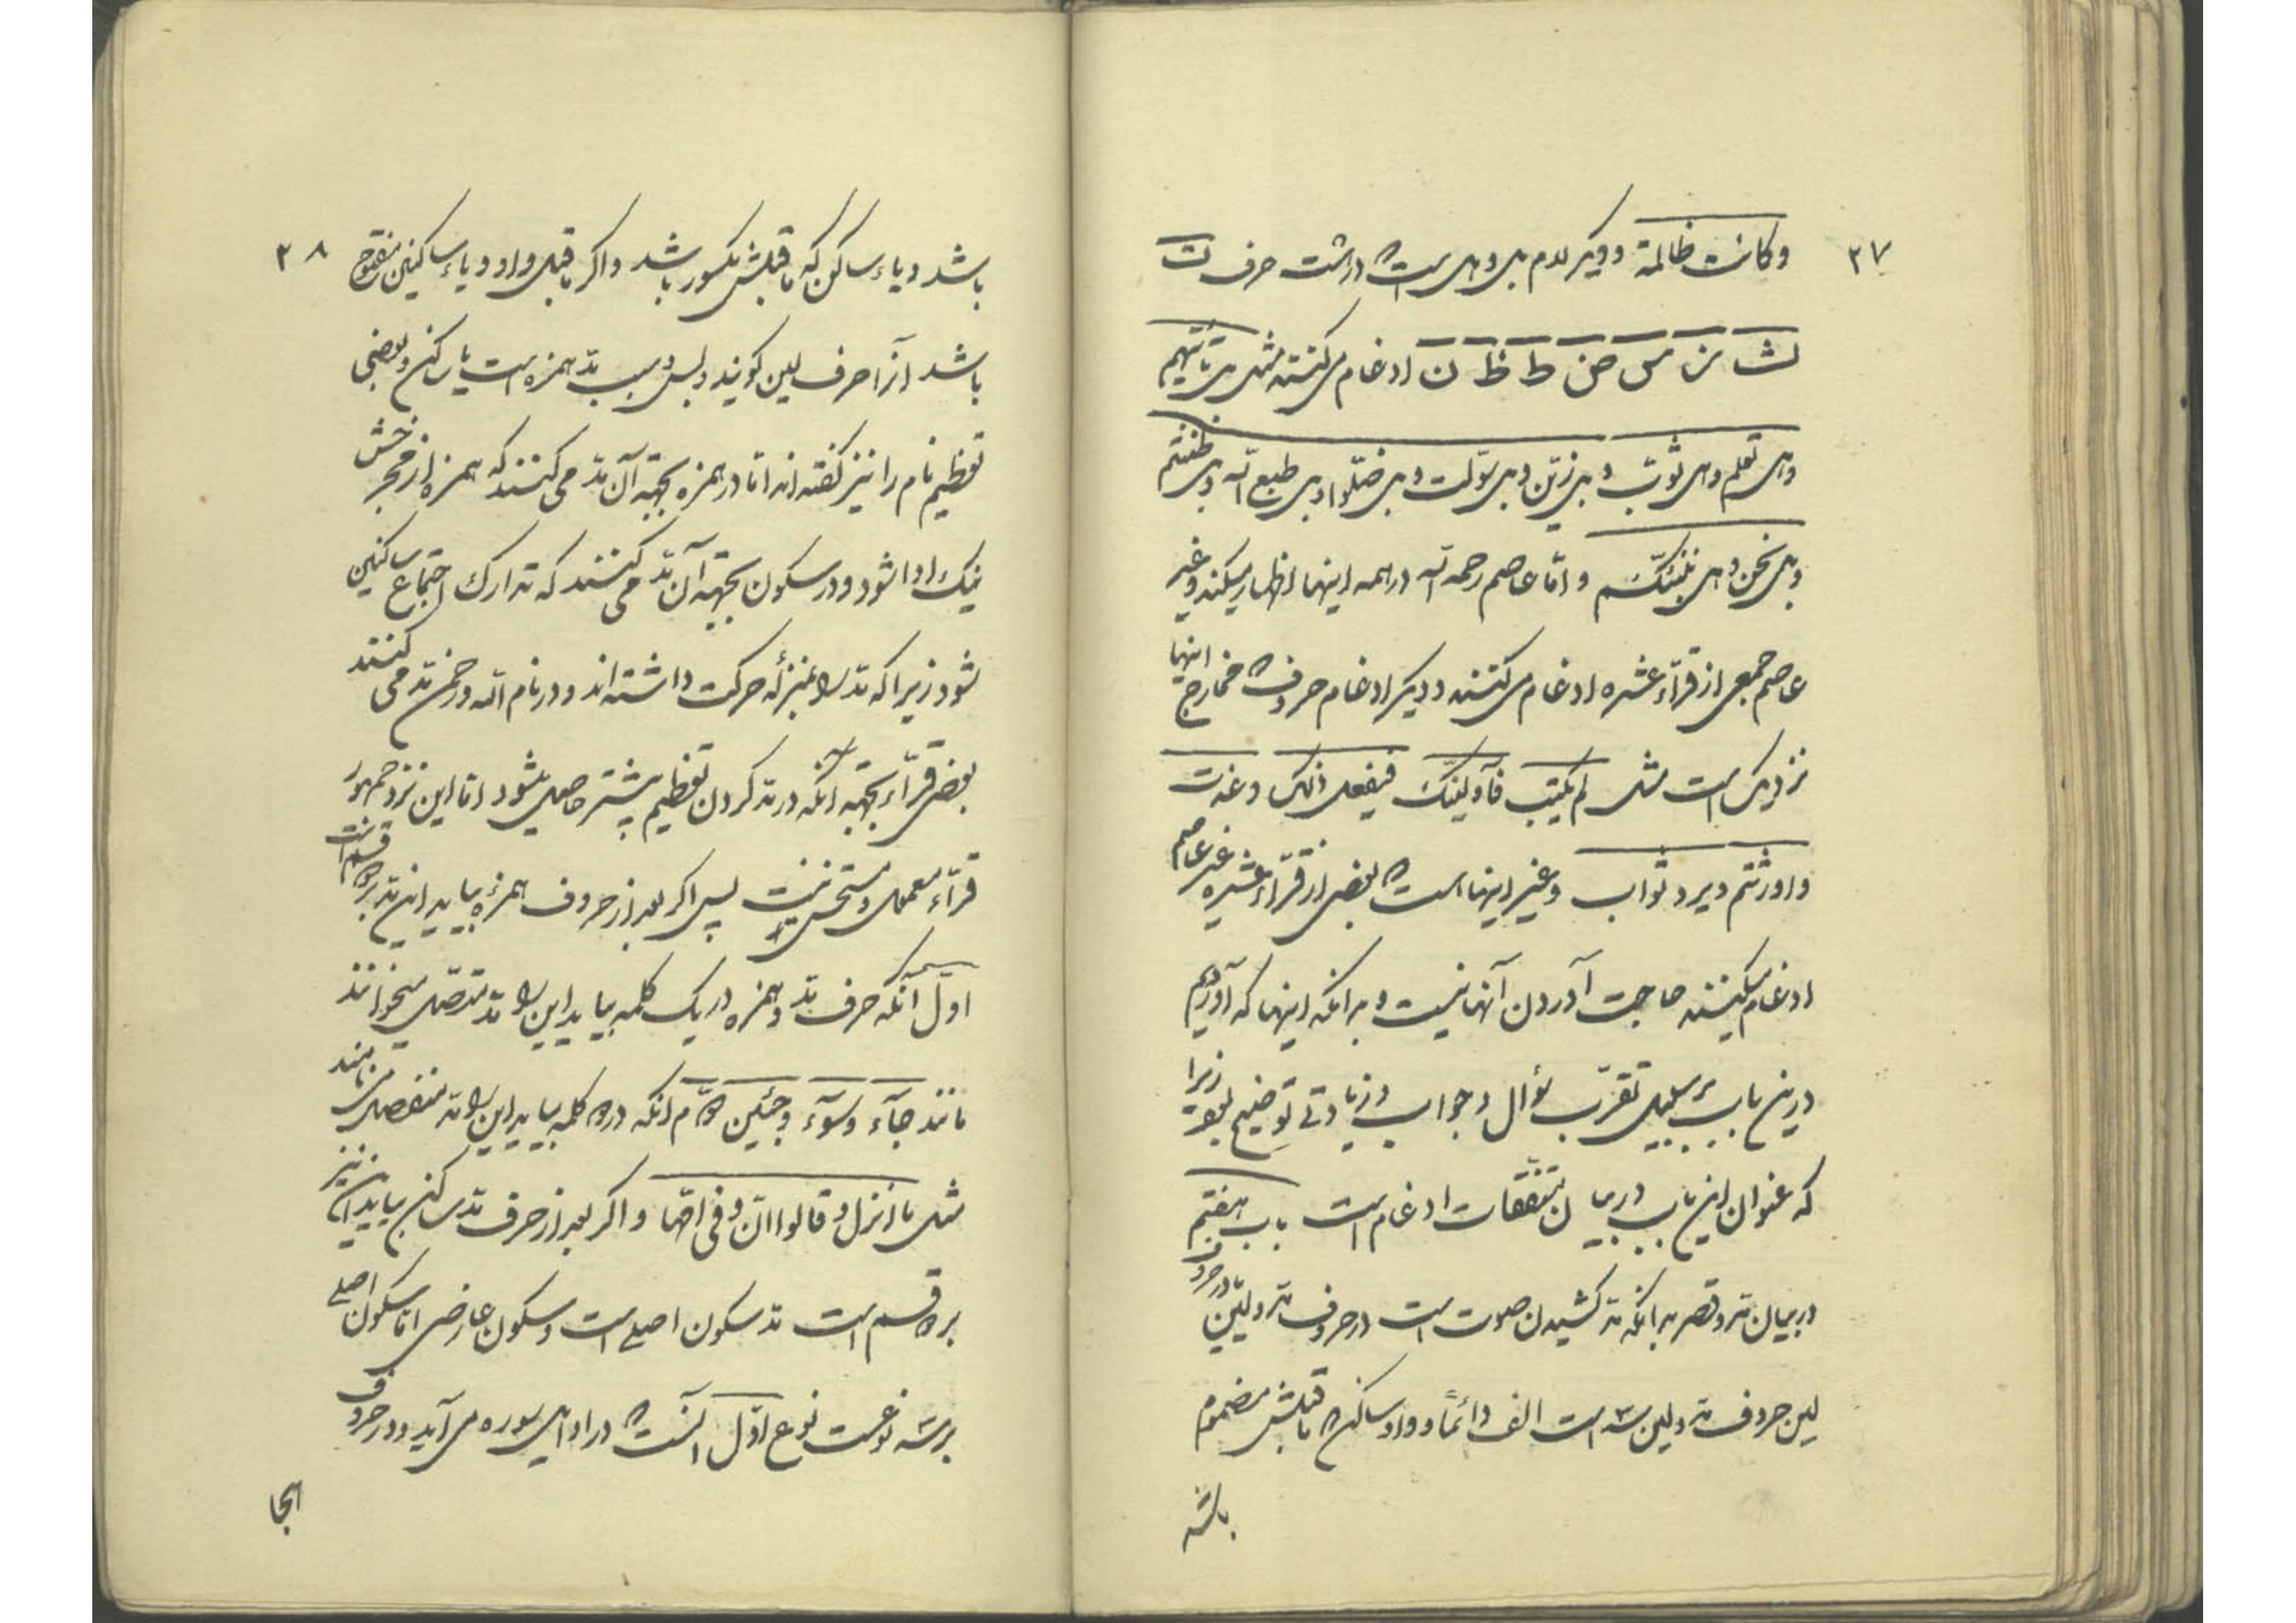 ۲۷
وکانت ظالمة و دیکر لام هل و بل است که در هشت حرف ت
ث ز س ض ط ظ ن ادغام میکنند مثل بل تأتیهم
وهل تعلم وهل ثوب و بل زین و بل سولت و بل ضلوا و بل طبع الله و بل ظننتم
و بل نحن وهل ننبئکم و اما عاصم رحمه الله در همه اینها اظهار میکند و غیر
عاصم جمعی از قراء عشره ادغام میکنند و دیکر ادغام حروف که مخارج اینها
نزدیک است مثل لم یتب فاولئک فیفعل ذلک و عذت
و اورثتم و یرد ثواب و غیر اینها است که بعضی از قراء عشره غیر عاصم
ادغام میکنند حاجت آوردن آنها نیست و بدانکه اینها که آوردیم
درین باب بر سبیل تقرب سؤال و جواب و زیادتی توضیح بود زیرا
که عنوان این باب در بیان متفقات ادغام است باب هفتم
در بیان مد و قصر بدانکه مد کشیدن صوت است در حروف مد و لین در حروف
لین حروف مد و لین سه است الف دائماً و واو ساکن که ما قبلش مضموم
باشد
۲۸
باشد و یاء ساکن که ما قبلش مکسور باشد و اکر ما قبل واو و یاء ساکنین مفتوح
باشد آنرا حرف لین کویند و بس و سبب مد همزه است یا ساکن و بعضی
تعظیم نام را نیز کفته اند اما در همزه بجهة آن مد می کنند که همزه از مخرجش
نیک ادا شود و در سکون بجهة آن مد می کنند که تدارک اجتماع ساکنین
شود زیرا که مد را بمنزلهٔ حرکت داشته اند و در نام الله و رحمن مد می کنند
بعضی قراء بجهة آنکه در مد کردن تعظیم بیشتر حاصل میشود اما این نزد جمهور
قراء معمول و مستحسن نیست پس اکر بعد از حروف همزه بیاید این مد بر دو قسم است
اول آنکه حرف مد و همزه در یک کلمه بیاید این را مد متصل میخوانند
مانند جآء و سوٓء و جئین دوم آنکه در دو کلمه بیاید این را مد منفصل می نامند
مثل ما انزل و قالوا ان و فی امها و اکر بعد از حرف مد ساکن بیاید آن نیز
بر دو قسم است مد سکون اصلی است و سکون عارضی اما سکون اصلی
بر سه نوعست نوع اول آنست که در اوایل سوره می آید و در حروف
هجا